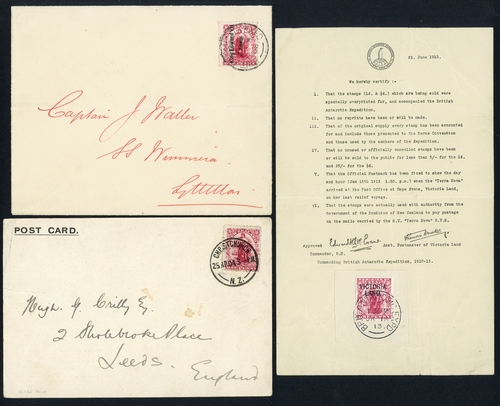 Captain J Waller
SS Wimmera
Lyttelton
POST CARD.
CHRISTCHURCH
N.Z.
Hugh G. Crilly Esq
2 Sholebroke Place
Leeds.
England
21. June 1913.
We hereby certify :-
i. That the stamps (1d. & ½d.) which are being sold were
specially overprinted for, and accompanied the British
Antarctic Expedition.
ii. That no reprints have been or will be made.
iii. That of the original supply every stamp has been accounted
for and include those presented to the Rome Convention
and those used by the members of the Expedition.
iv. That no unused or officially cancelled stamps have been
or will be sold to the public for less than 5/- for the 1d.
and 25/- for the ½d.
v. That the Official Postmark has been fixed to show the day
and hour (Jan 18th 1913 1.50. p.m.) when the "Terra Nova"
arrived at the Post Office at Cape Evans, Victoria Land,
on her last relief voyage.
vi. That the stamps were actually used with authority from the
Government of the Dominion of New Zealand to pay postage
on the mails carried by the R.Y. "Terra Nova" R.Y.S.
Approved
Asst. Postmaster of Victoria Land
Commander, R.N.
Commanding British Antarctic Expedition, 1910-13.
VICTORIA
LAND.